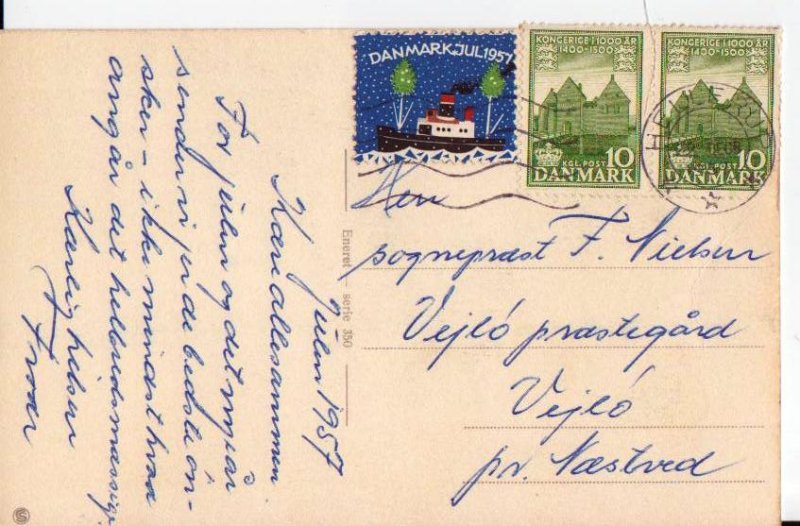 julen 1957
Kære allesammen
For julen og det nyår
sender vi jer de bedste øn-
sker - ikke mindst hvad
angår det helbredsmæssige
Kærlig hilsen
DANMARK.JUL 1957
KONGERIGE I 1000 ÅR
1400-1500
KGL. POST 10
DANMARK
KONGERIGE I 1000 ÅR
1400-1500
KGL. POST 10
DANMARK
Eneret - serie 350
Hrr
sognepræst F. Nielsen
Vejlø præstegård
Vejlø
pr. Næstved